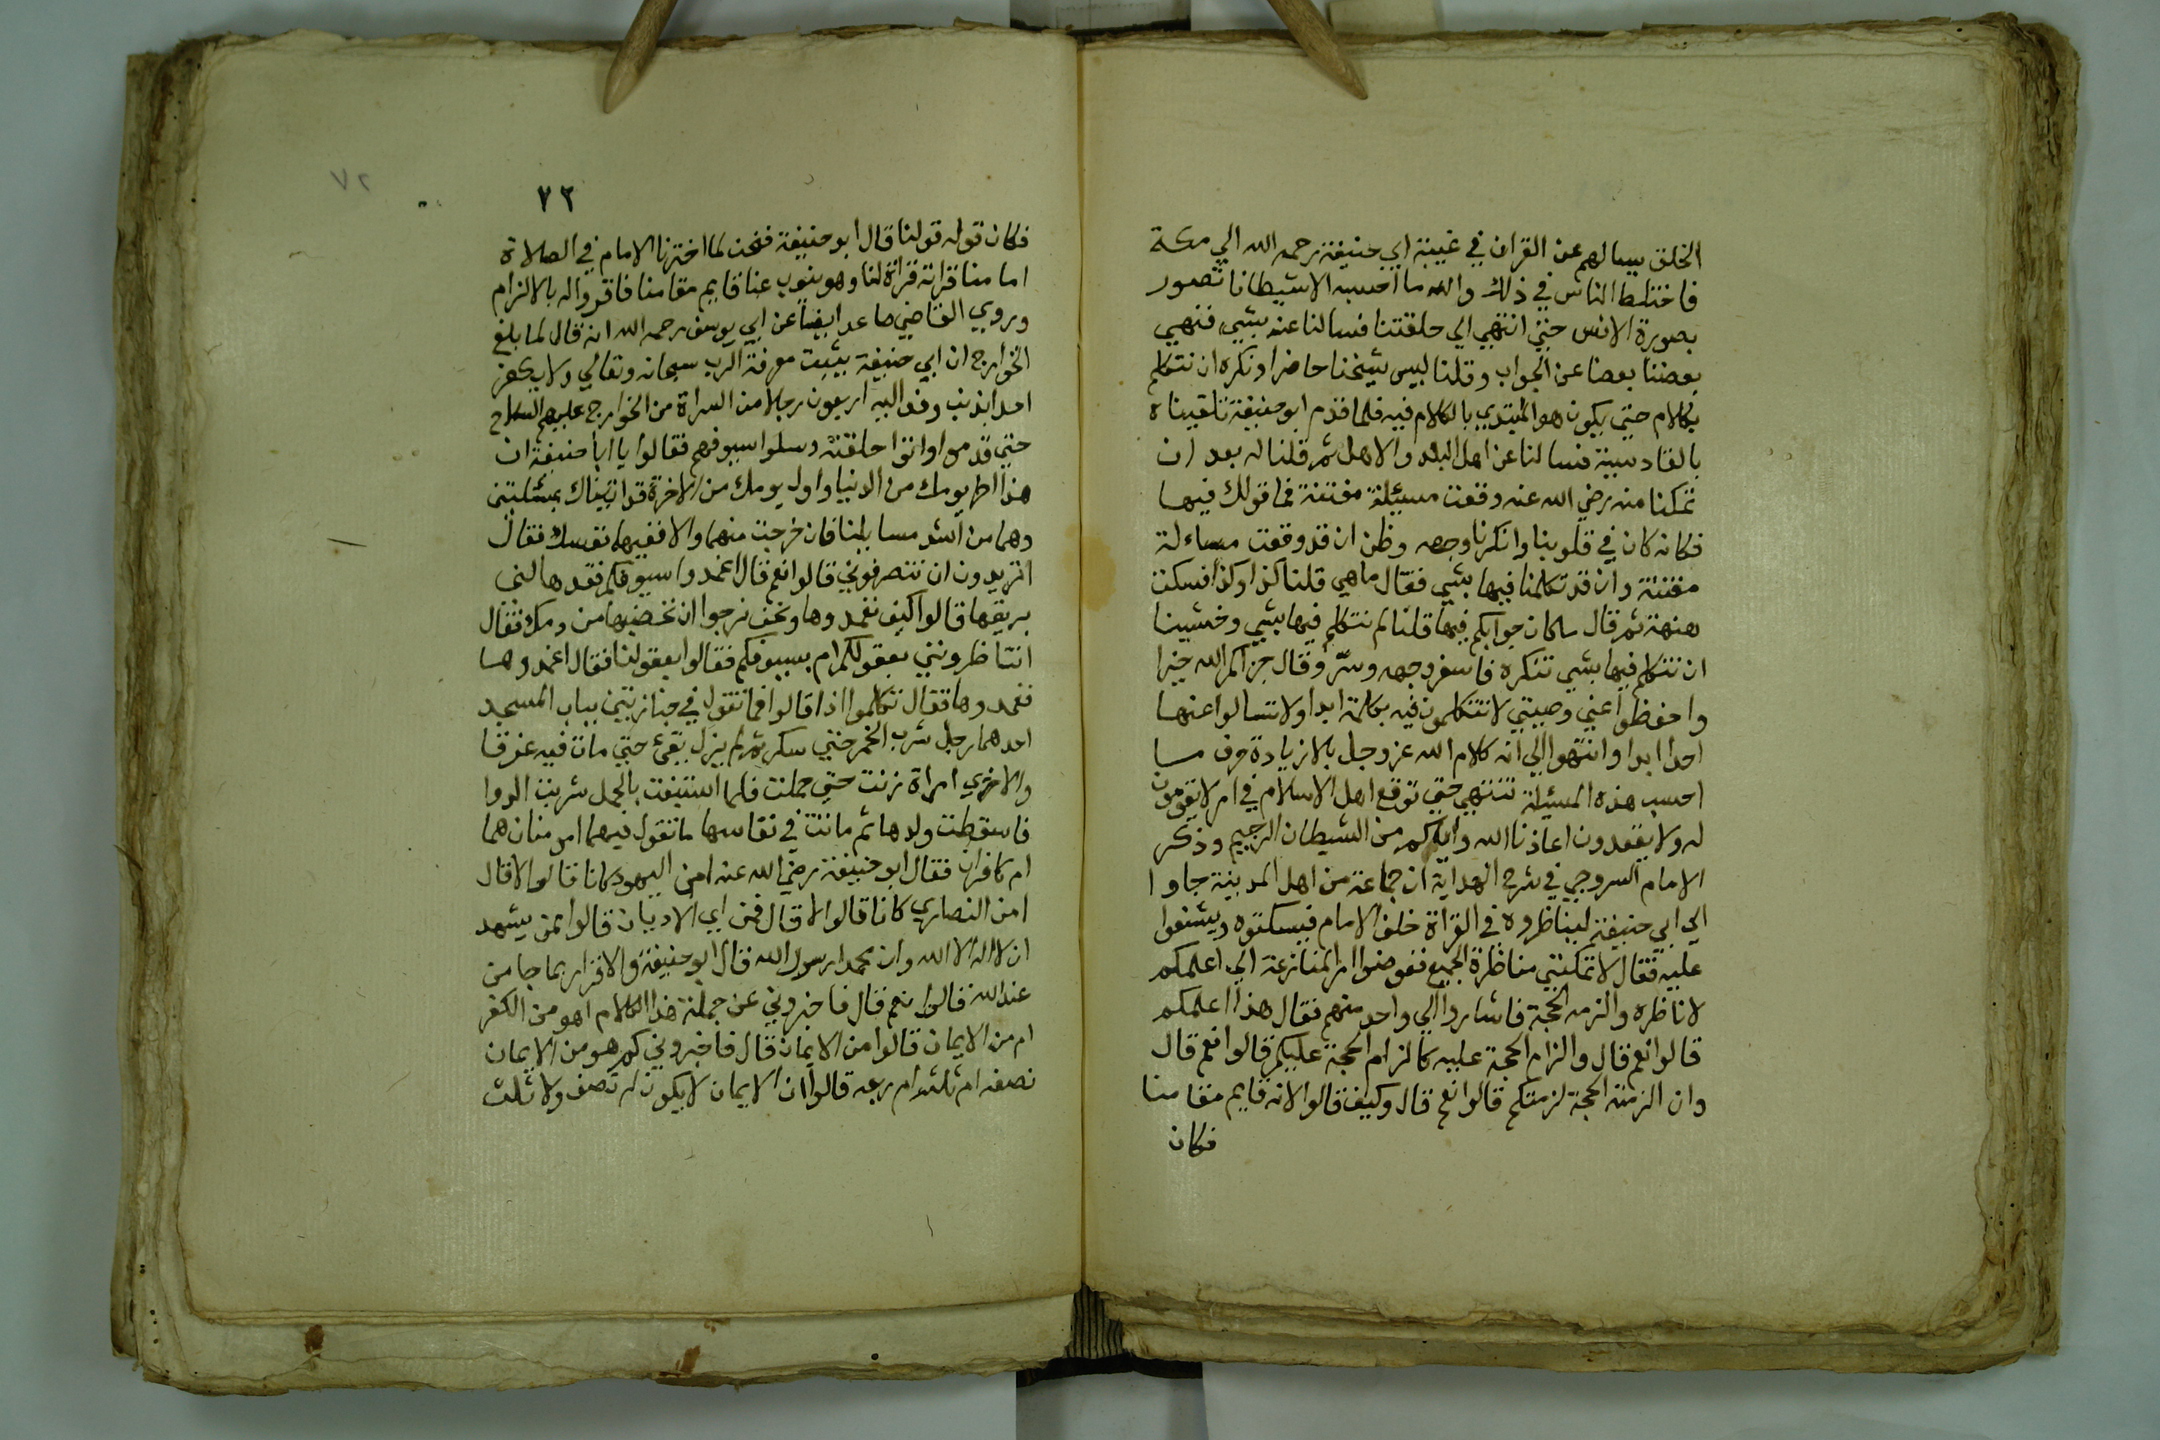 الخلق يسالهم عن القران في غيبة ابي حنيفة رحمه الله الي مكة
فاختلط الناس في ذلك والله ما احسبه الا شيطانا تصور
بصورة الانس حتي انتهي الي حلقتنا فسالنا عنه بشي فنهي
بعضنا بعضا عن الجواب وقلنا ليس شيخنا حاضرا ونكره ان نتكلم
بكلام حتي يكون هو المبتدي بالكلام فيه فلما قدم ابو حنيفة تلقيناه
بالقادسية فسالنا عن اهل البلد والاهل ثم قلنا له بعد ان
تمكنا منه رضي الله عنه وقعت مسئلة مفتنة فما قولك فيها
فكانه كان في قلوبنا وانكرنا وجهه وظن ان قد وقعت مساءلة
مفتنة وان قد تكلمنا فيها بشي فقال ما هي قلنا كذا وكذا فسكت
هنهة ثم قال ما كان جوابكم فيها قلنا لم نتكلم فيها بشي وخشينا
ان نتكلم فيها بشي تنكره فاسفر وجهه وسر وقال جزاكم الله خيرا
واحفظوا عني وصيتي لا تتكلمون فيه بكلمة ابدا ولا تسالوا عنها
احدا ابدا وانتهوا الي انه كلام الله عز وجل بلا زيادة حرف ما
احسب هذه المسئلة تنتهي حتي توقع اهل الاسلام في امر لا يقومون
له ولا يقعدون اعاذنا الله واياكم من الشيطان الرجيم وذكر
الامام السروجي في شرح الهداية ان جماعة من اهل المدينة جاوا
الي ابي حنيفة ليناظروه في القراة خلف الامام فيسكتوه ويشنعوا
عليه فقال لا تمكنني مناظرة الجميع ففوضوا امر المنازعة الي اعلمكم
لاناظره والزمه الحجة فاشاروا الي واحد منهم فقال هذا اعلمكم
قالوا نعم قال والزام الحجة عليه كالزام الحجة عليكم قالوا نعم قال
وان الزمته الحجة لزمتكم قالوا نعم قال وكيف قالوا لانه قايم مقامنا
فكان
٧٢
٧٢
فكان قوله قولنا قال ابو حنيفة فنحن لما اخترنا الامام في الصلاة
اما منا قراته قراة لنا وهو ينوب عنا قايم مقامنا فاقروا له بالالزام
وروي القاضي صاعد ايضا عن ابي يوسف رحمه الله انه قال لما بلغ
الخوارج ان ابي حنيفة يثبت معرفة الرب سبحانه وتعالي ولا يكفر
احدا بذنب وفد اليه اربعون رجلا من السراة من الخوارج عليهم السلاح
حتي قدموا واتوا حلقته وسلوا سيوفهم فقالوا يا ابا حنيفة ان
هذا اخر يومك من الدنيا واول يومك من الاخرة قد اتيناك بمسئلتين
وهما من اشد مسايلنا فان خرجت منهما والا ففيهما نفسك فقال
اتريدون ان تنصرفوني قالوا نعم قال اغمدوا سيوفكم فقد هالني
بريقها قالوا كيف نغمدوها ونحن نرجوا ان نخضبها من دمك فقال
اتناظرونني بعقولكم ام بسيوفكم فقالوا بعقولنا فقال اغمدوها
فغمدوها فقال تكلموا اذا قالوا فما تقول في جنازتين بباب المسجد
احدهما رجل شرب الخمر حتي سكر ثم لم يزل يقئ حتي مات فيه غرقا
والاخري امراة زنت حتي حملت فلما استيقنت بالحمل شربت الدوا
فاسقطت ولدها ثم ماتت في نفاسها ما تقول فيهما امومنان هما
ام كافران فقال ابو حنيفة رضي الله عنه امن اليهود كانا قالوا لا قال
امن النصاري كانا قالوا لا قال فمن اي الاديان قالوا ممن يشهد
ان لا اله الا الله وان محمدا رسول الله قال ابو حنيفة والاقرار بما جا من
عند الله قالوا نعم قال فاخبروني عن جملة هذا الكلام اهو من الكفر
ام من الايمان قالوا من الايمان قال فاخبروني كم هو من الايمان
نصفه ام ثلثه ام ربعه قالوا ان الايمان لا يكون له نصف ولا ثلث